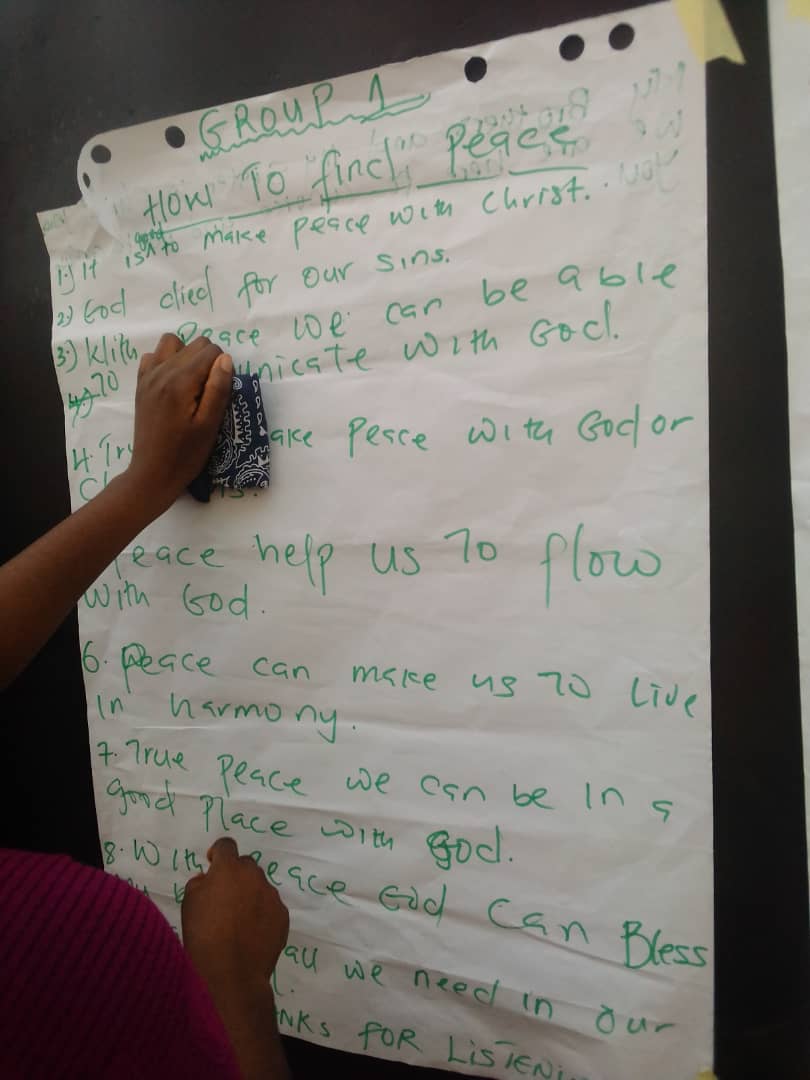 GROUP 1
How To find Peace
1.) it is good to make peace with Christ.
2.) God died for our sins.
3.) With Peace we can be able
To unicate with God.
4. Tr ake Peace with God or
Peace help us To flow
with God.
6. Peace can make us To Live
In harmony.
7. True Peace we can be In a
good Place with God.
8. With Peace God can Bless
all we need in our
NKS FOR LISTENI